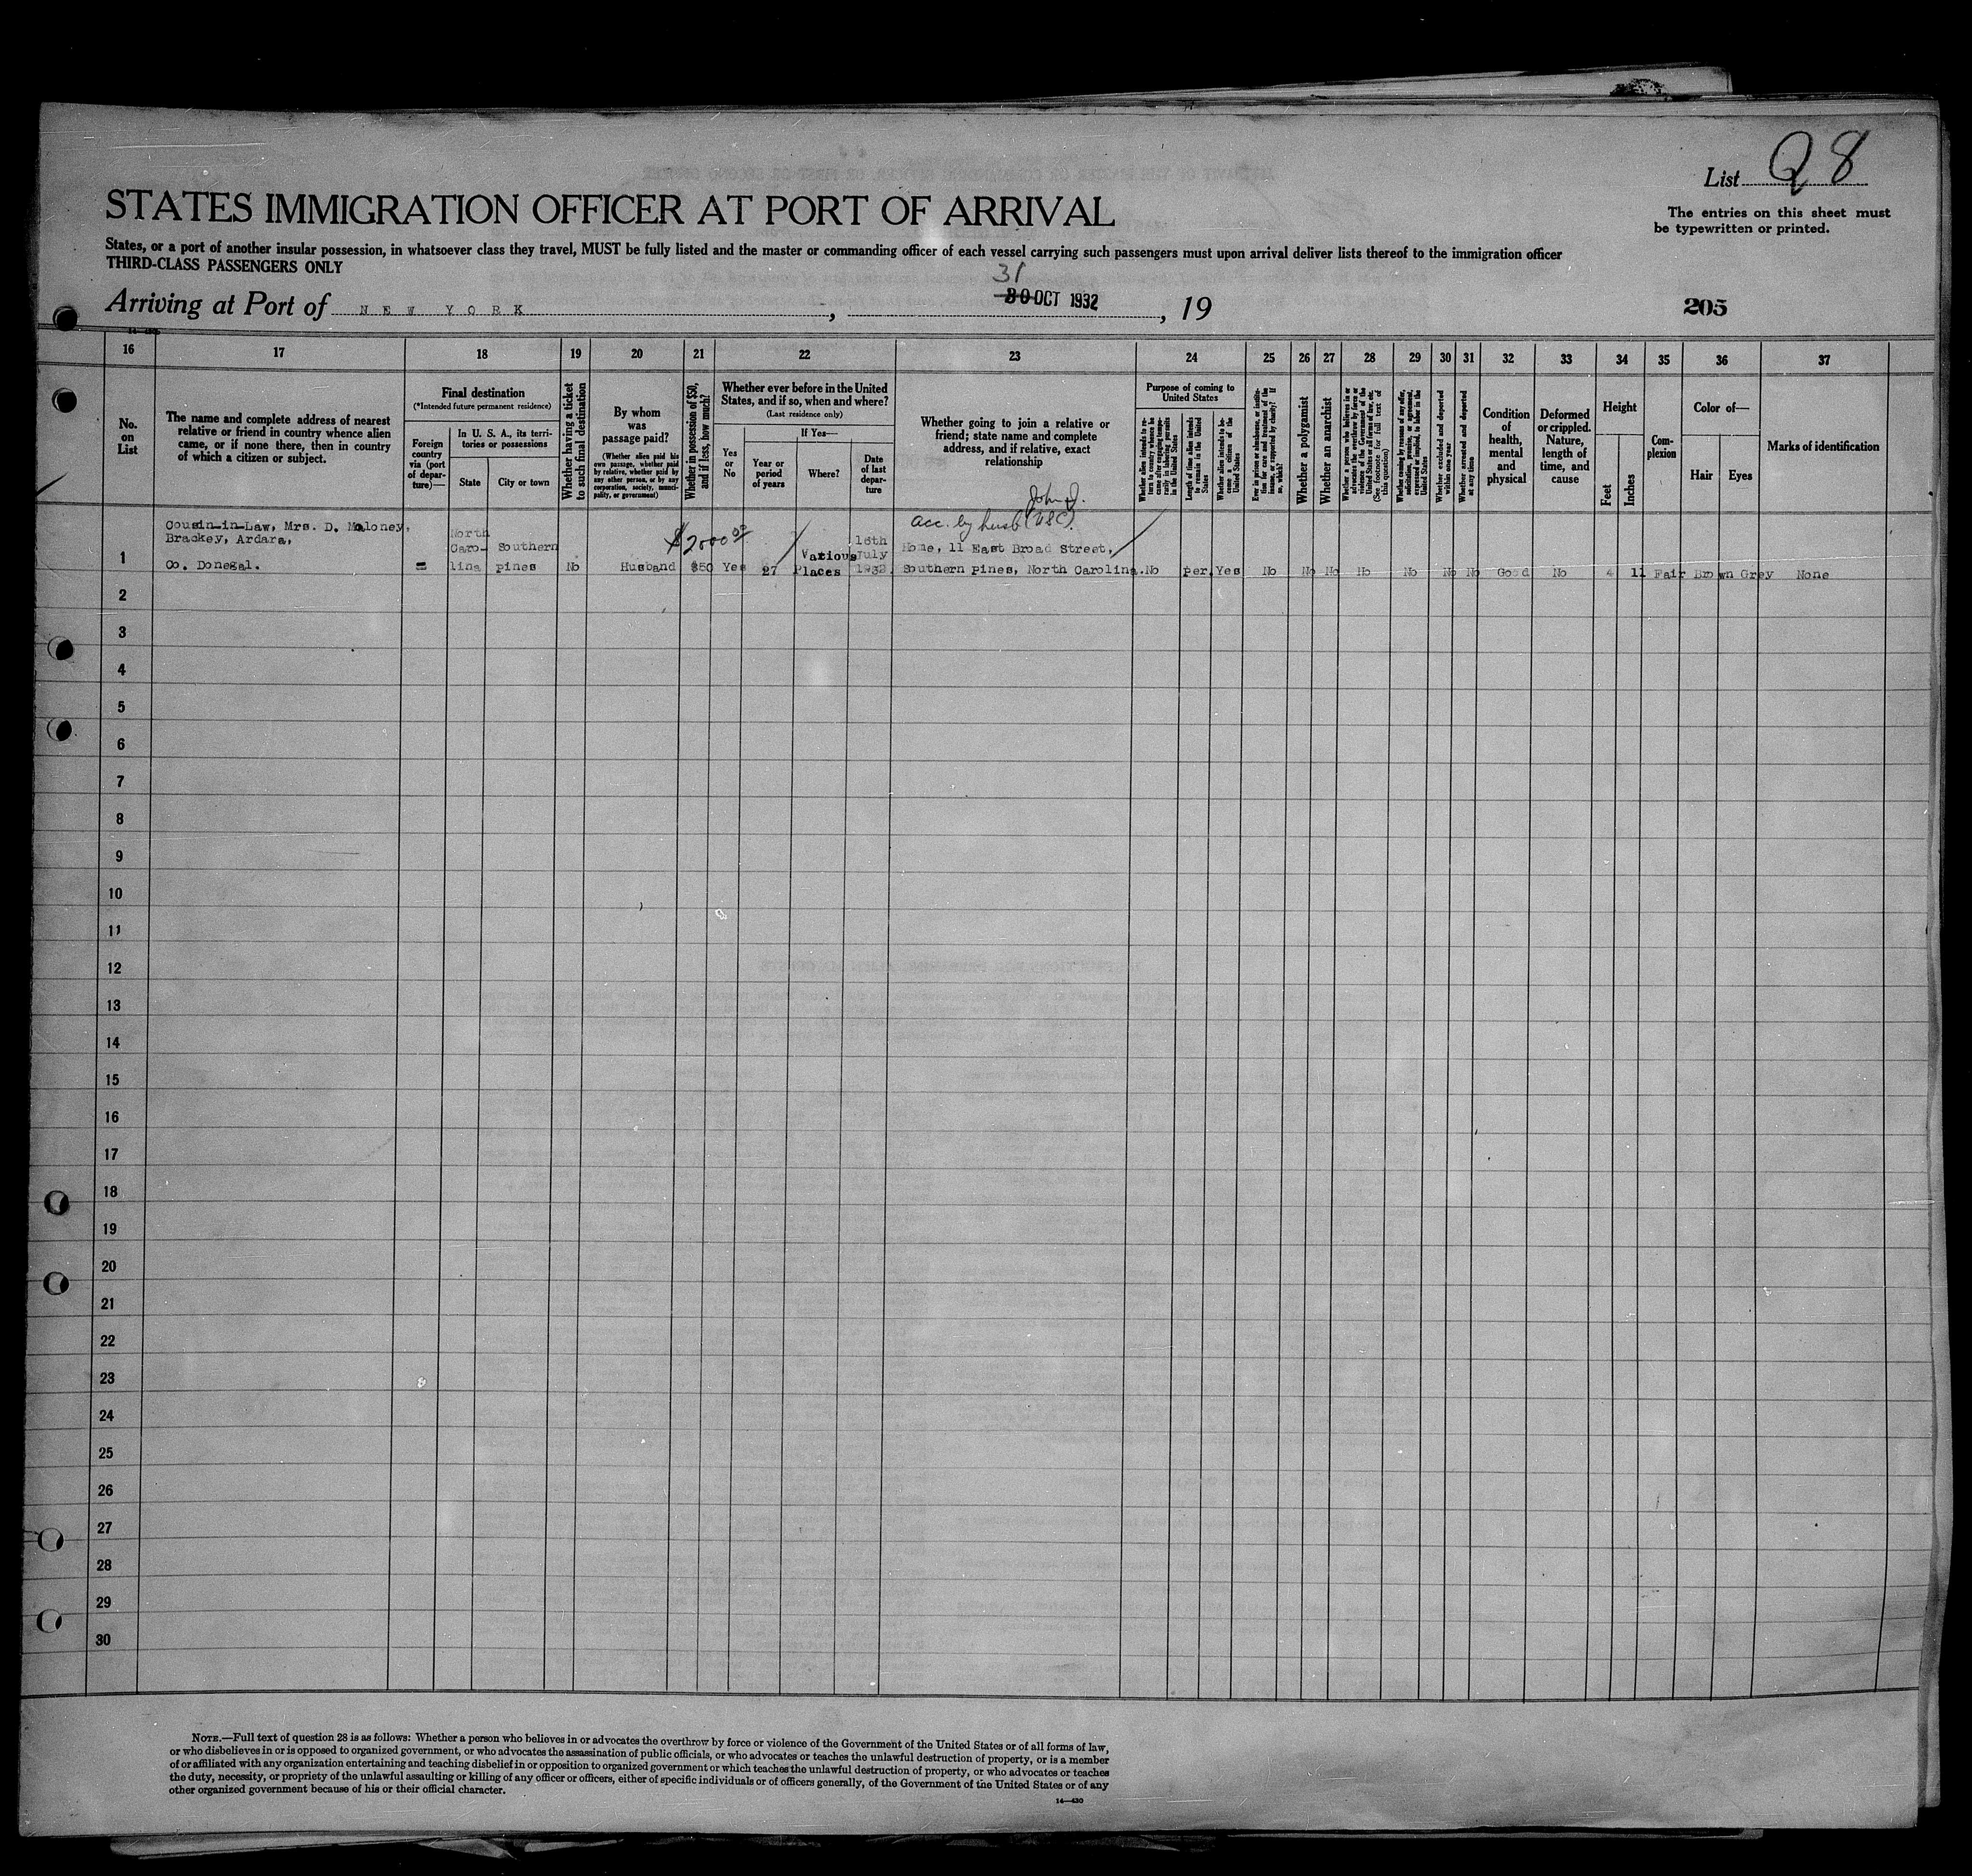 List 28
The entries on this sheet must
be typewritten or printed.
STATES IMMIGRATION OFFICER AT PORT OF ARRIVAL
States, or a port of another insular possession, in whatsoever class they travel, MUST be fully listed and the master or commanding officer of each vessel carrying such passengers must upon arrival deliver lists thereof to the immigration officer
THIRD-CLASS PASSENGERS ONLY
31
Arriving at Port of NEW YORK, 30 OCT 1932, 19
205
16 17 18 19 20 21 22 23 24 25 26 27 28 29 30 31 32 33 34 35 36 37
No.
on
List
The name and complete address of nearest
relative or friend in country whence alien
came, or if none there, then in country
of which a citizen or subject.
Final destination
(*Intended future permanent residence)
Foreign
country
via (port
of depar-
ture)—
In U. S. A., its terri-
tories or possessions
State
City or town
Whether having a ticket
to such final destination
By whom
was
passage paid?
(Whether alien paid his
own passage, whether paid
by relative, whether paid by
any other person, or by any
corporation, society, munici-
pality, or government)
Whether in possession of $50,
and if less, how much?
Whether ever before in the United
States, and if so, when and where?
(Last residence only)
Yes
or
No
If Yes—
Year or
period
of years
Where?
Date
of last
depar-
ture
Whether going to join a relative or
friend; state name and complete
address, and if relative, exact
relationship
Purpose of coming to
United States
Whether alien intends to re-
turn to country whence he
came after engaging tempo-
rarily in laboring pursuits
in the United States
Length of time alien intends
to remain in the United
States
Whether alien intends to be-
come a citizen of the
United States
Ever in prison or almshouse, or institu-
tion for care and treatment of the
insane, or supported by charity? If
so, which?
Whether a polygamist
Whether an anarchist
Whether a person who believes in or
advocates the overthrow by force or
violence of the Government of the
United States or all forms of law, etc.
(See footnote for full text of
this question)
Whether coming by reason of any offer,
solicitation, promise, or agreement,
expressed or implied, to labor in the
United States
Whether excluded and deported
within one year
Whether arrested and deported
at any time
Condition
of
health,
mental
and
physical
Deformed
or crippled.
Nature,
length of
time, and
cause
Height
Feet
Inches
Com-
plexion
Color of—
Hair
Eyes
Marks of identification
John J.
acc. by husb (USC).
Cousin-in-Law, Mrs. D. Maloney,
Brackey, Ardara,
Co. Donegal.
1
North
Caro-
lina
Southern
pines
No
Husband
$2000.00
$50
Yes
27
Various
Places
16th
July
1932
Home, 11 East Broad Street,
Southern pines, North Carolina.
No per. Yes No No No No No No No Good No 4 11 Fair Brown Grey None
2
3
4
5
6
7
8
9
10
11
12
13
14
15
16
17
18
19
20
21
22
23
24
25
26
27
28
29
30
NOTE.—Full text of question 28 is as follows: Whether a person who believes in or advocates the overthrow by force or violence of the Government of the United States or of all forms of law,
or who disbelieves in or is opposed to organized government, or who advocates the assassination of public officials, or who advocates or teaches the unlawful destruction of property, or is a member
of or affiliated with any organization entertaining and teaching disbelief in or opposition to organized government or which teaches the unlawful destruction of property, or who advocates or teaches
the duty, necessity, or propriety of the unlawful assaulting or killing of any officer or officers, either of specific individuals or of officers generally, of the Government of the United States or of any
other organized government because of his or their official character.
14—430